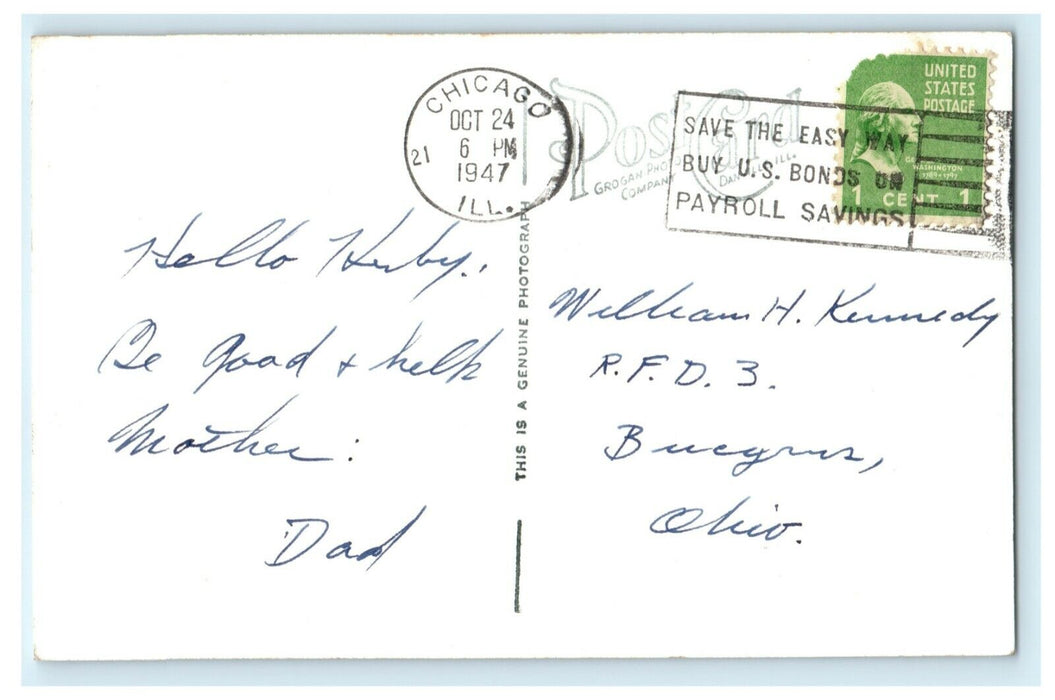 CHICAGO
OCT 24
21 6 PM
1947
ILL.
Post Card
GROGAN PHOTO
COMPANY DANVILLE, ILL.
SAVE THE EASY WAY
BUY U.S. BONDS ON
PAYROLL SAVINGS
UNITED
STATES
POSTAGE
WASHINGTON
1789-1797
1 CENT 1
Hello Huby,
Be good & help
Mother:
Dad
THIS IS A GENUINE PHOTOGRAPH
William H. Kennedy
R.F.D. 3.
Bucyrus,
Ohio.